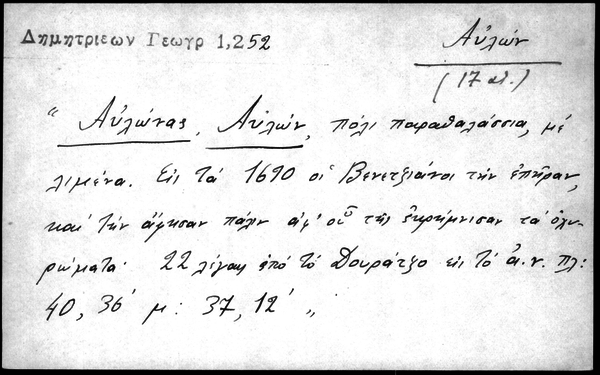 Δημητριεων Γεωγρ 1,252
Αὐλών
(17 αι.)
" Αὐλώνας, Αὐλών, πόλι παραθαλάσσια, μέ
λιμένα. Εἰς τά 1690 οἱ Βενετζιάνοι τήν ἐπῆραν,
καί τήν ἄφησαν πάλιν ἀφ' οὗ τῆς ἐκρήμνισαν τά ὀχυ-
ρώματα· 22 λίγαις ἀπό τό Δουράτζο εἰς τό ἀ. ν. πλ:
40, 36' μ: 37, 12' "